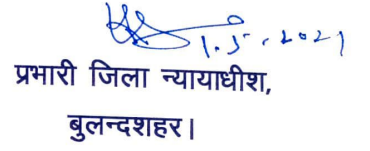 1.5.2021
प्रभारी जिला न्यायाधीश,
बुलन्दशहर।